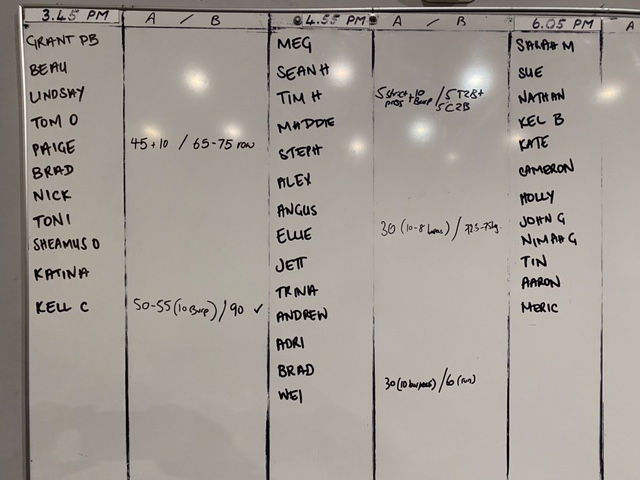 3.45 PM
A / B
GRANT PB
BEAU
LINDSAY
TOM O
PAIGE 45+10 / 65-75 row
BRAD
NICK
TONI
SHEAMUS O
KATINA
KELL C 50-55 (10 Burp) / 90 ✓
4.55 PM
A / B
MEG
SEAN H
TIM H 5 strict press + 10 Burp / 5 T2B + 5 C2B
MADDIE
STEPH
ALEX
ANGUS
ELLIE 30 (10-8 burps) / 72.5-75kg.
JETT
TRINA
ANDREW
ADRI
BRAD
WEI 30 (10 burpees) / 60 (run)
6.05 PM
A
SARAH M
SUE
NATHAN
KEL B
KATE
CAMERON
HOLLY
JOHN G
NIMAH G
TIN
AARON
MERIC